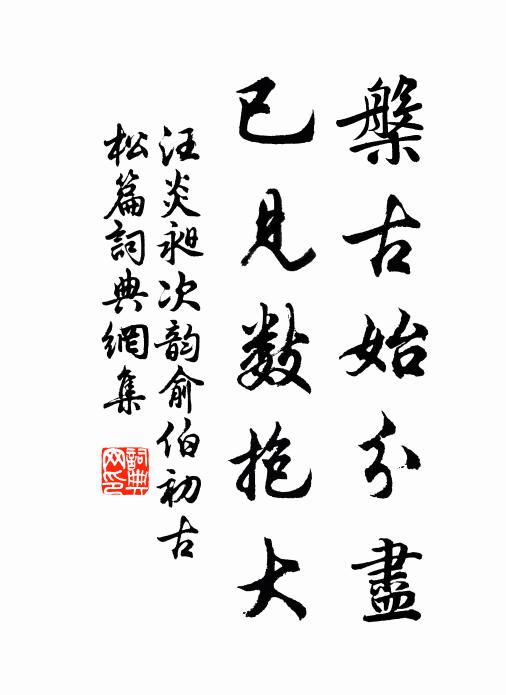 槃古始分盡
已見數抱大
汪炎昶次韵俞伯初古
松篇詞典網集
詞典網印